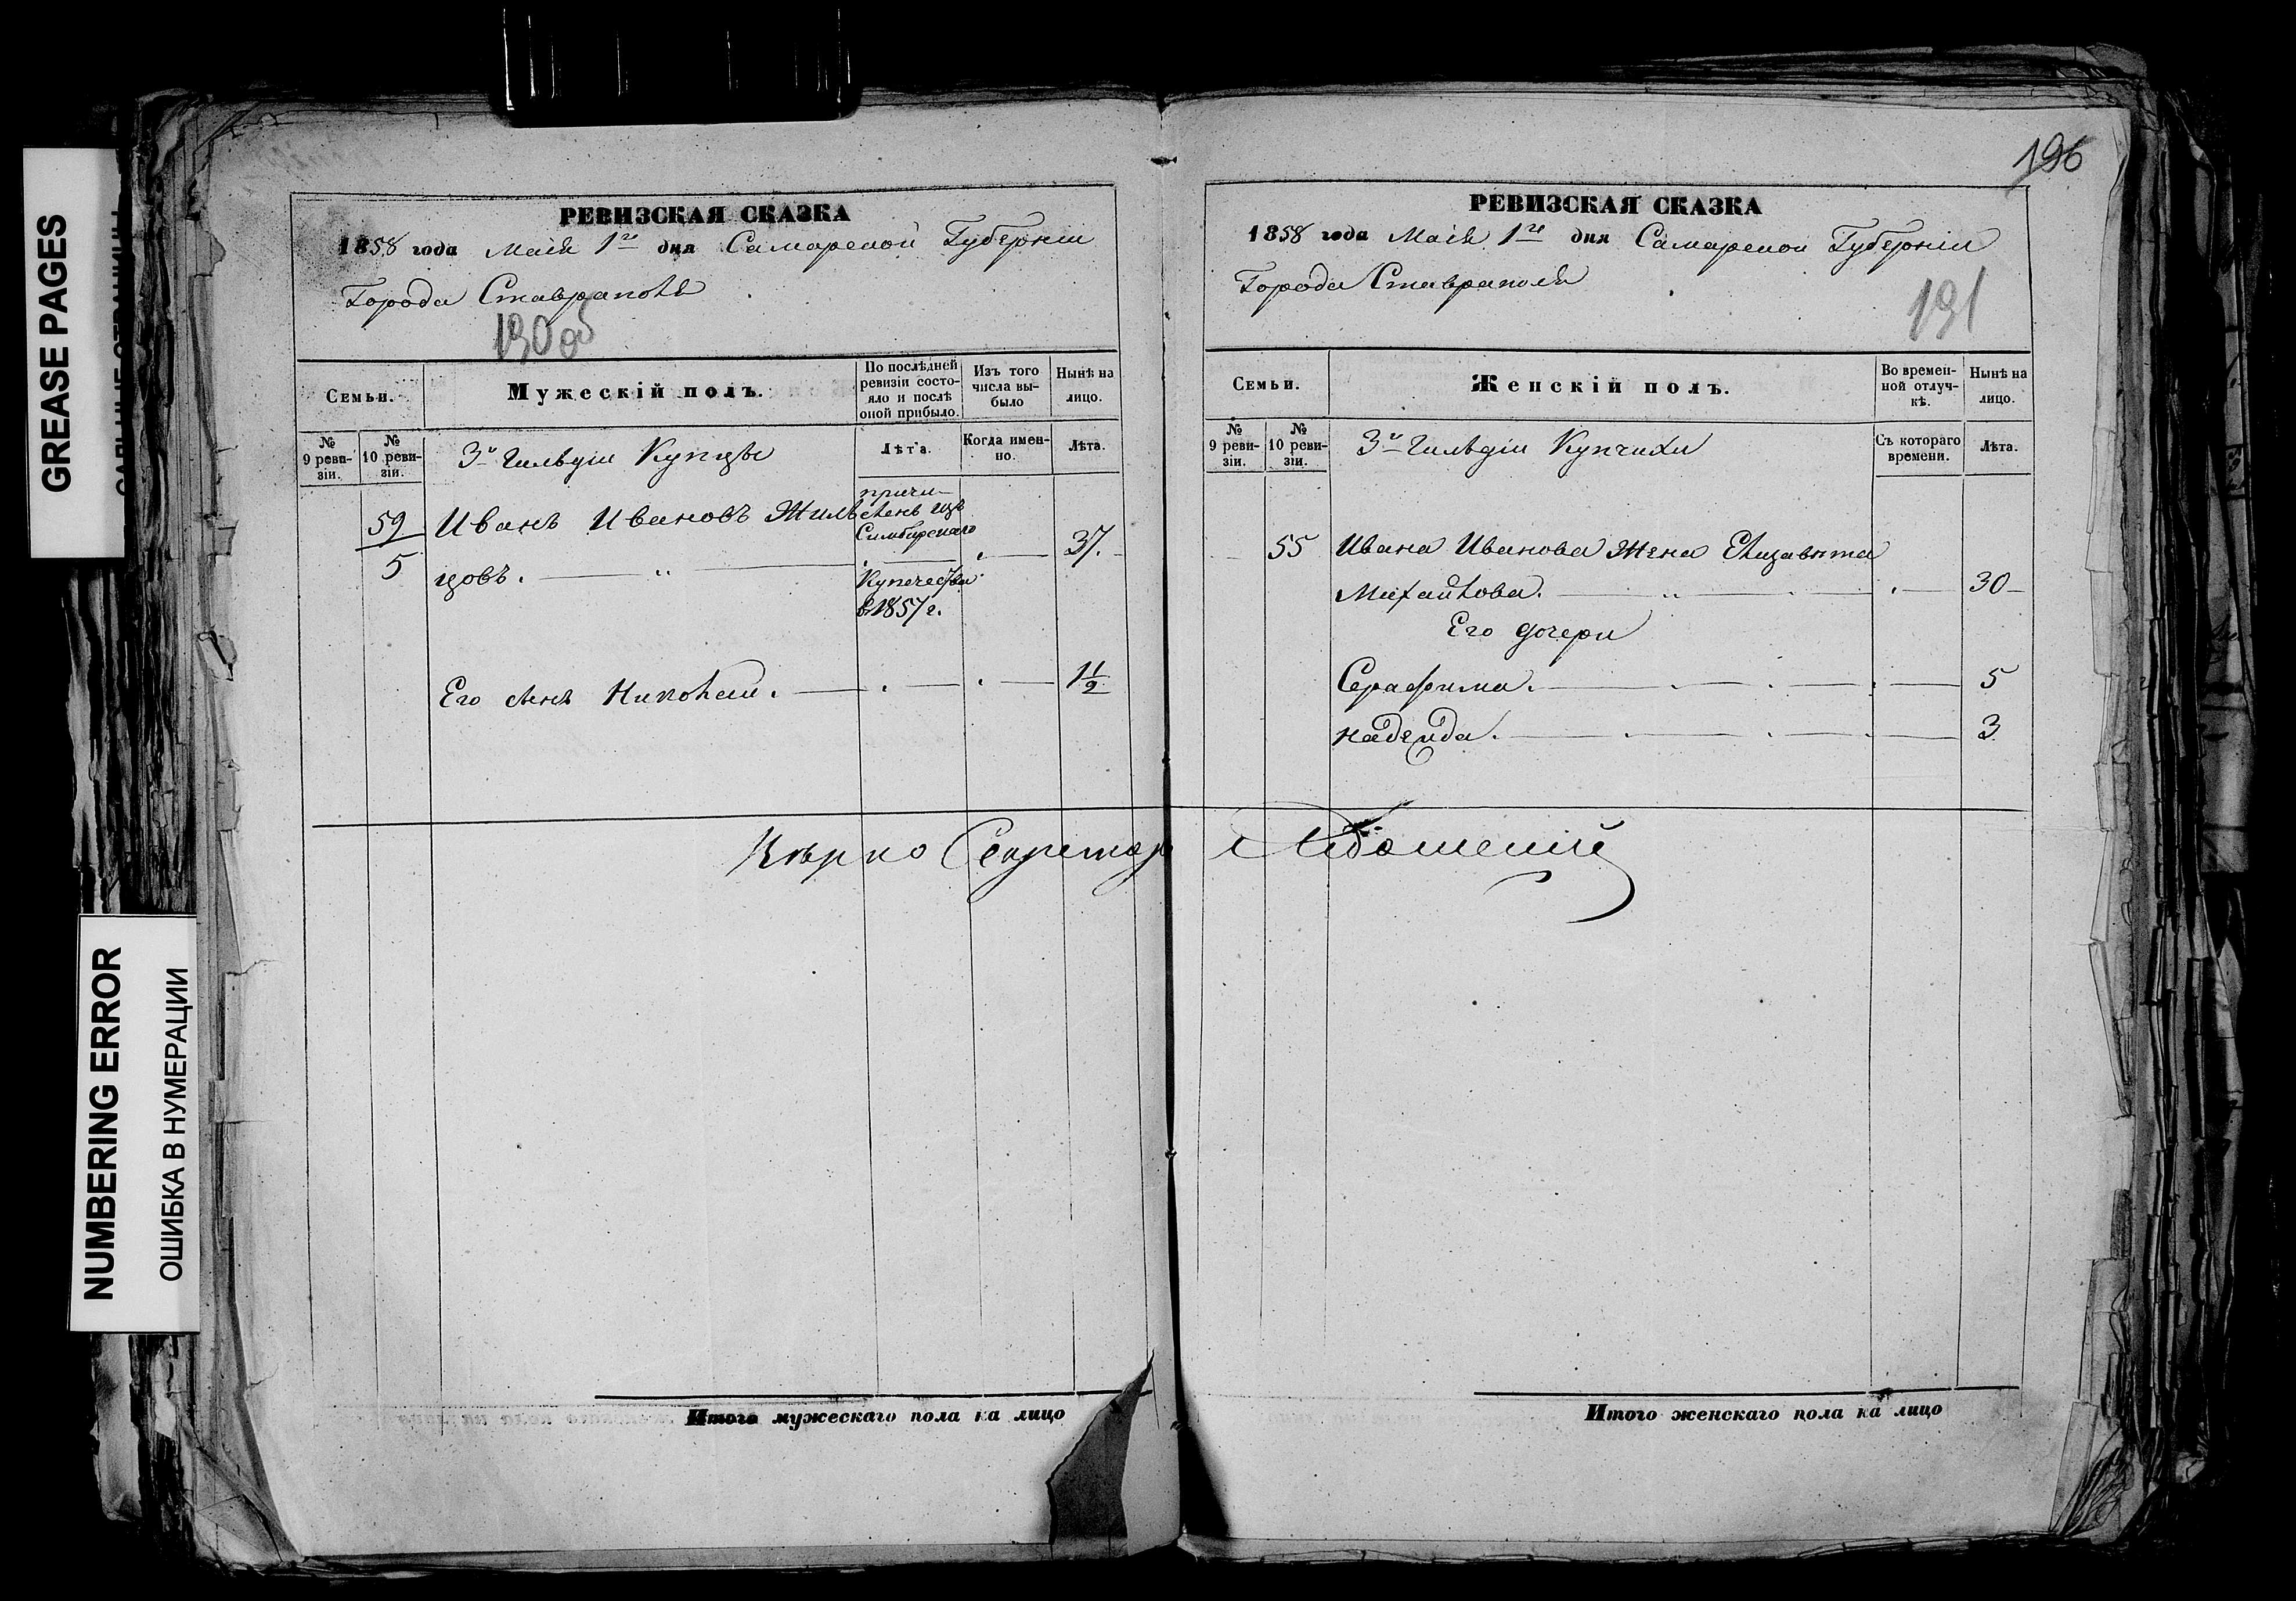 GREASE PAGES
NUMBERING ERROR
ОШИБКА В НУМЕРАЦИИ
РЕВИЗСКАЯ СКАЗКА
1858 года Маія 1го дня Самарской Губерніи
Города Ставраполя
190 об
Семьи.
Мужескій полъ.
По послѣдней ревизіи состояло и послѣ оной прибыло.
Изъ того числа выбыло
Нынѣ на лицо.
№ 9 ревизіи.
№ 10 ревизіи.
3й Гильдіи Купцы
Лѣта.
Когда именно.
Лѣта.
59
5
Иванъ Ивановъ Жиль
цовъ.
причи-
сленъ изъ
Симбирскаго
Купечества
в 1857 г.
37.
Его сынъ Николай.
1 1/2
Вѣрно Секретарь
Итого мужескаго пола на лицо
196
РЕВИЗСКАЯ СКАЗКА
1858 года Маія 1го дня Самарской Губерніи
Города Ставраполя
191
Семьи.
Женскій полъ.
Во временной отлучкѣ.
Нынѣ на лицо.
№ 9 ревизіи.
№ 10 ревизіи.
3й Гильдіи Купчихи
Съ котораго времени.
Лѣта.
55 Ивана Иванова жена Елизавѣта
Михайлова. 30
Его дочери
Серафима. 5
Надежда. 3
Итого женскаго пола на лицо